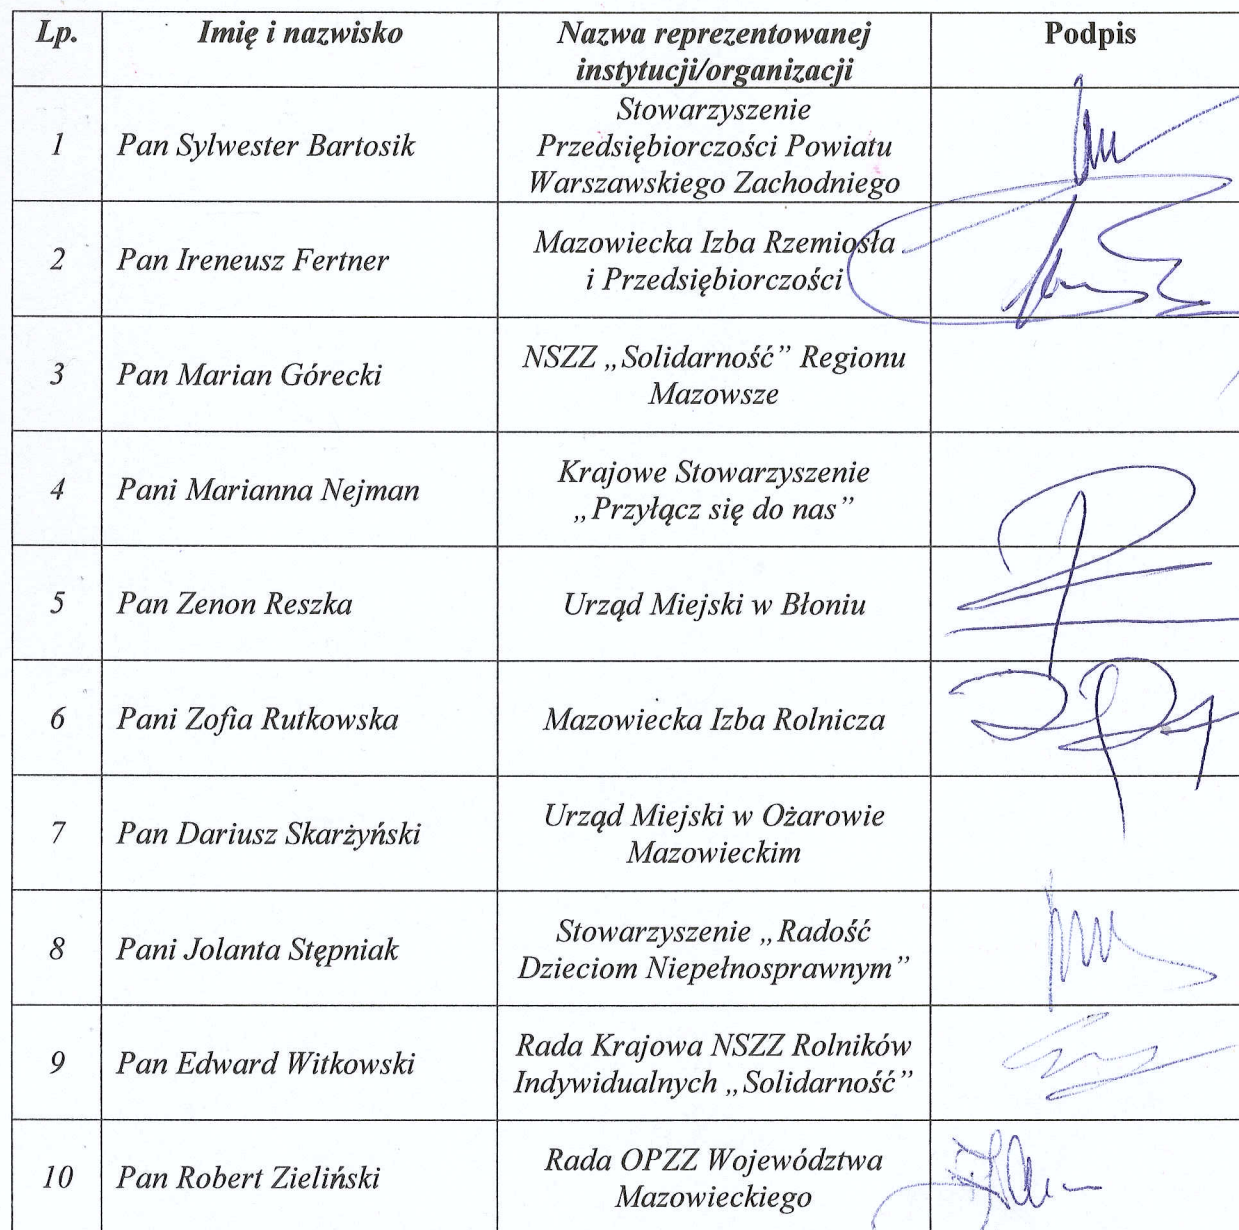 Lp. Imię i nazwisko Nazwa reprezentowanej Podpis
instytucji/organizacji
1 Pan Sylwester Bartosik Stowarzyszenie
Przedsiębiorczości Powiatu
Warszawskiego Zachodniego
2 Pan Ireneusz Fertner Mazowiecka Izba Rzemiosła
i Przedsiębiorczości
3 Pan Marian Górecki NSZZ „Solidarność” Regionu
Mazowsze
4 Pani Marianna Nejman Krajowe Stowarzyszenie
„Przyłącz się do nas”
5 Pan Zenon Reszka Urząd Miejski w Błoniu
6 Pani Zofia Rutkowska Mazowiecka Izba Rolnicza
7 Pan Dariusz Skarżyński Urząd Miejski w Ożarowie
Mazowieckim
8 Pani Jolanta Stępniak Stowarzyszenie „Radość
Dzieciom Niepełnosprawnym”
9 Pan Edward Witkowski Rada Krajowa NSZZ Rolników
Indywidualnych „Solidarność”
10 Pan Robert Zieliński Rada OPZZ Województwa
Mazowieckiego